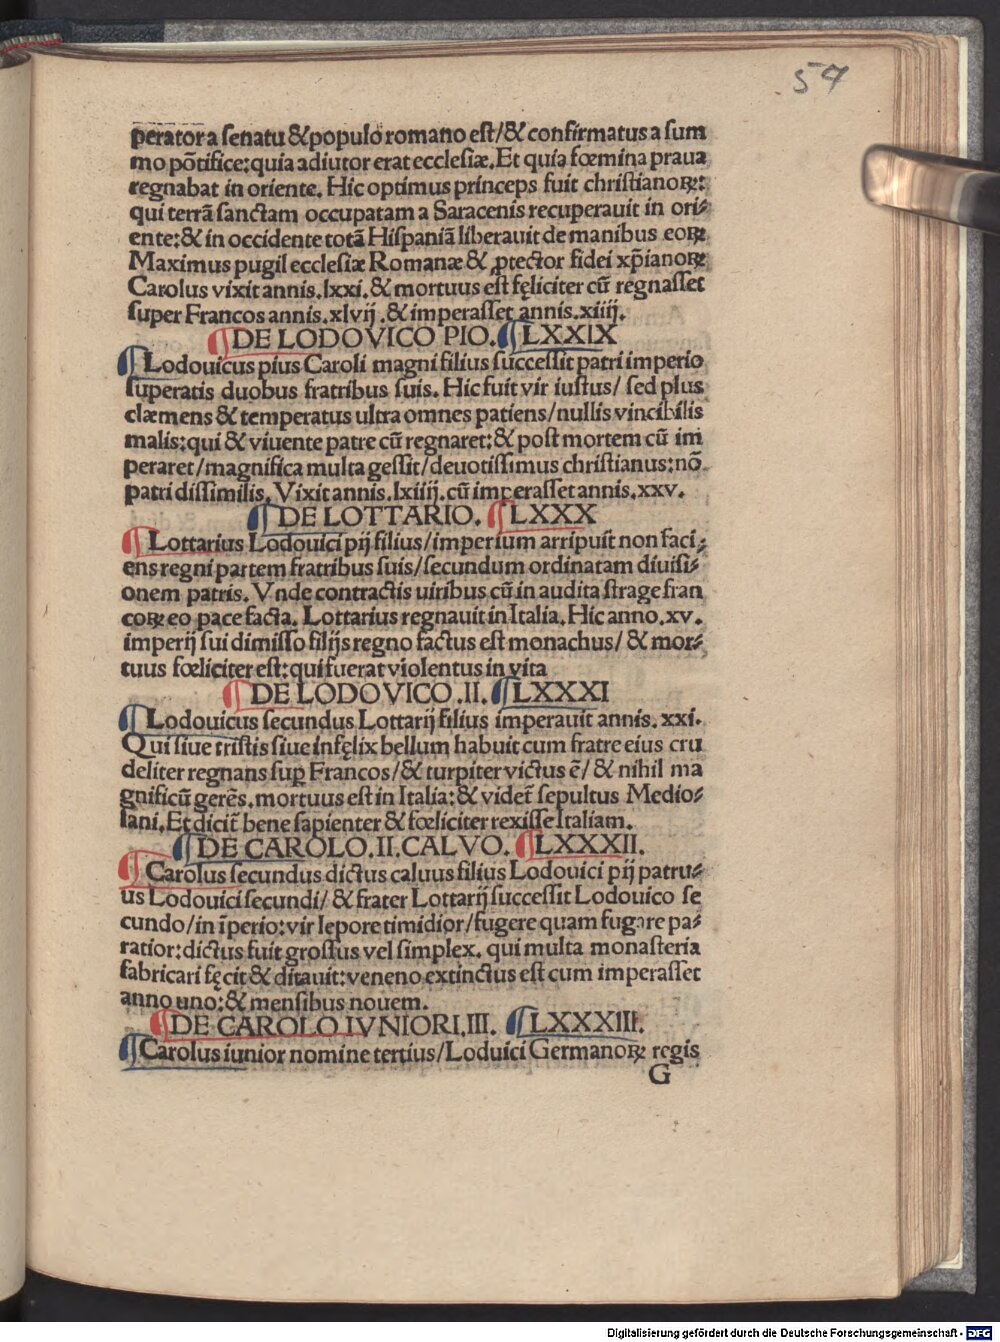 57
perator a senatu & populo romano est/& confirmatus a sum
mo põtifice:quia adiutor erat ecclesiæ.Et quia fœmina praua
regnabat in oriente. Hic optimus princeps fuit christianoꝝ:
qui terrã sanctam occupatam a Saracenis recuperauit in ori⸗
ente:& in occidente totã Hispaniã liberauit de manibus eoꝝ
Maximus pugil ecclesiæ Romanæ & ꝓtector fidei xp̃ianoꝝ
Carolus vixit annis.lxxi.& mortuus est fęliciter cũ regnasset
super Francos annis.xlvij.& imperasset annis.xiiij.
¶DE LODOVICO PIO.¶LXXIX
¶Lodouicus pius Caroli magni filius successit patri imperio
superatis duobus fratribus suis. Hic fuit vir iustus/ sed plus
clæmens & temperatus ultra omnes patiens/nullis vincibilis
malis:qui & viuente patre cũ regnaret:& post mortem cũ im
peraret/magnifica multa gessit/deuotissimus christianus:nõ
patri dissimilis. Vixit annis.lxiiij.cũ imperasset annis.xxv.
¶DE LOTTARIO.¶LXXX
¶Lottarius Lodouici pij filius/imperium arripuit non faci⸗
ens regni partem fratribus suis/secundum ordinatam diuisi⸗
onem patris. Vnde contractis uiribus cũ in audita strage fran
coꝝ eo pace facta. Lottarius regnauit in Italia. Hic anno.xv.
imperij sui dimisso filijs regno factus est monachus/ & mor⸗
tuus fœliciter est:qui fuerat violentus in vita
¶DE LODOVICO.II.¶LXXXI
¶Lodouicus secundus Lottarij filius imperauit annis.xxi.
Qui siue tristis siue infęlix bellum habuit cum fratre eius cru
deliter regnans sup̱ Francos/& turpiter victus ẽ/& nihil ma
gnificũ gerẽs.mortuus est in Italia:& videt̃ sepultus Medio⸗
lani.Et dicit̃ bene sapienter & fœliciter rexisse Italiam.
¶DE CAROLO.II.CALVO.¶LXXXII.
¶Carolus secundus dictus caluus filius Lodouici pij patru⸗
us Lodouici secundi/& frater Lottarij successit Lodouico se
cundo/in ĩperio:vir lepore timidior/fugere quam fugare pa⸗
ratior:dictus fuit grossus vel simplex. qui multa monasteria
fabricari fęcit & ditauit:veneno extinctus est cum imperasset
anno uno:& mensibus nouem.
¶DE CAROLO IVNIORI.III.¶LXXXIII.
¶Carolus iunior nomine tertius/Loduici Germanoꝝ regis
G
Digitalisierung gefördert durch die Deutsche Forschungsgemeinschaft - DFG